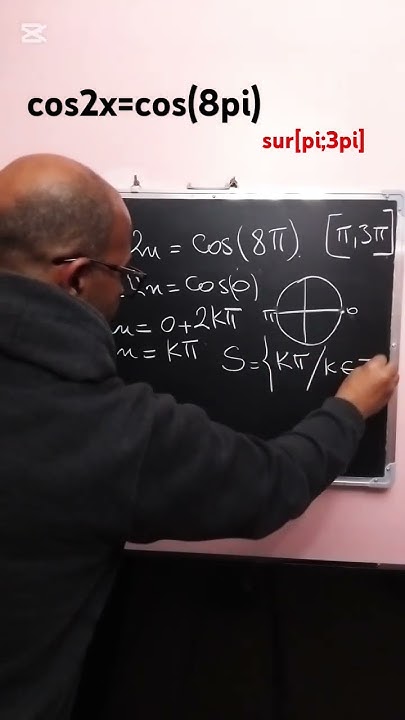 cos2x=cos(8pi)
sur[pi;3pi]
2x = cos(8π). [π,3π]
2x = cos(0)
π 0
x = 0+2kπ
x = kπ S={kπ/k∈